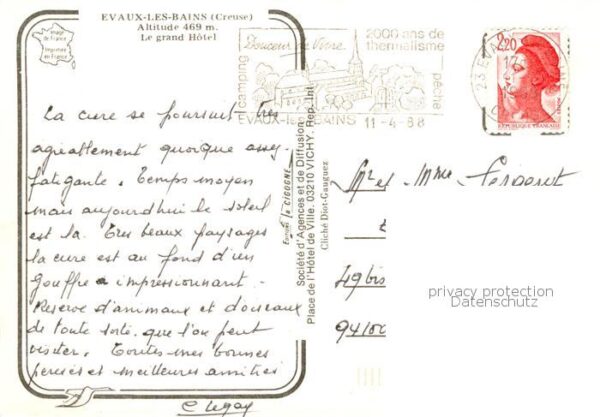 EVAUX-LES-BAINS (Creuse)
Altitude 469 m.
Le grand Hôtel
image de France
Imprimé en France
camping
Douceur de Vivre
2000 ans de
thermalisme
pêche
EVAUX-les-BAINS 11-4-88
2,20
REPUBLIQUE FRANÇAISE
La cure se poursuit très
agréablement quoique assez
fatigante. Temps moyen
mais aujourd'hui le soleil
est là. Très beaux paysages
la cure est au fond d'un
gouffre impressionnant.
Réserve d'animaux et d'oiseaux
de toute sorte que l'on peut
visiter. Toutes mes bonnes
pensées et meilleures amitiés
Editions "la CIGOGNE"
Société d'Agences et de Diffusion
Place de l'Hôtel de Ville. 03210 VICHY. Rep. Int.
Cliché Diot-Gauguez
Mr et Mme
49bis
94100
privacy protection
Datenschutz